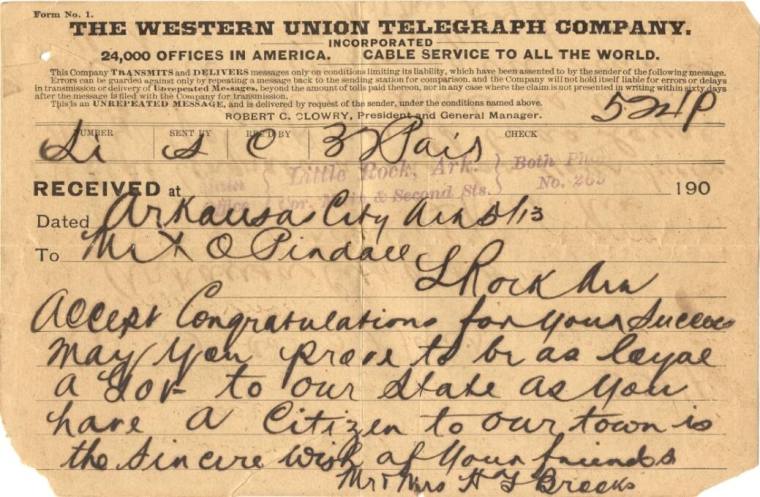 Form No. 1.
THE WESTERN UNION TELEGRAPH COMPANY.
INCORPORATED
24,000 OFFICES IN AMERICA. CABLE SERVICE TO ALL THE WORLD.
This Company TRANSMITS and DELIVERS messages only on conditions limiting its liability, which have been assented to by the sender of the following message.
Errors can be guarded against only by repeating a message back to the sending station for comparison, and the Company will not hold itself liable for errors or delays
in transmission or delivery of Unrepeated Messages, beyond the amount of tolls paid thereon, nor in any case where the claim is not presented in writing within sixty days
after the message is filed with the Company for transmission.
This is an UNREPEATED MESSAGE, and is delivered by request of the sender, under the conditions named above.
ROBERT C. CLOWRY, President and General Manager.
524P
NUMBER SENT BY REC'D BY CHECK
Li S C 32 Paid
Little Rock, Ark. Both
Office Cor. & Second Sts. No.
RECEIVED at 190
Dated Arkansas City Ark 13
To Mr X O Pindall
L Rock Ark
Accept Congratulations for your Success
may you prove to be as loyal
a Gov to our State as you
have a Citizen to our town is
the sincere wish of your friends
Mr & Mrs H Brooks